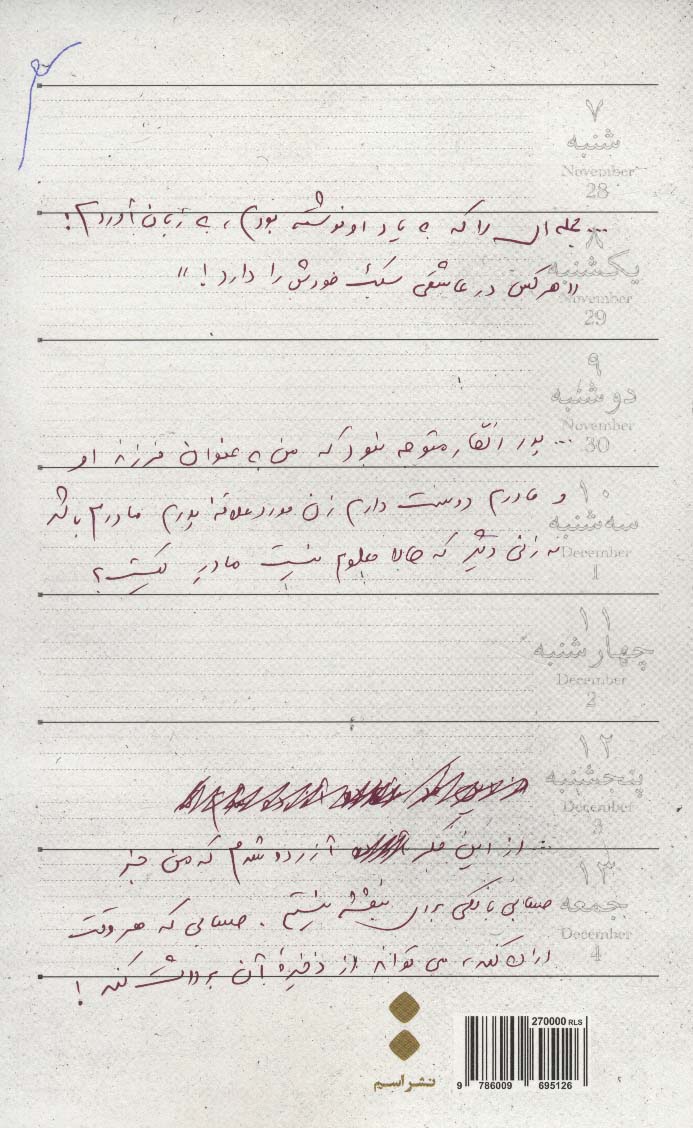 ۷
شنبه
November
28
... جمله‌ای را که به یاد او نوشته بودم، به زبان آوردم!
۸
یکشنبه
«هر کس در عاشقی سبک خودش را دارد!»
November
29
۹
دوشنبه
November
... پدر انگار متوجه نبود که من به عنوان فرزند او
30
۱۰
و مادرم دوست دارم زن مورد علاقهٔ پدرم مادرم باشد
سه‌شنبه
نه زنی دیگر که حالا معلوم نیست مادرِ کیست؟
December
1
۱۱
چهارشنبه
December
2
۱۲
پنجشنبه
December
3
... از این فکر آزرده شدم که من جز
۱۳
حسابی بانکی برای بنفشه نیستم. حسابی که هر وقت
جمعه
December
اراده کند، می‌تواند از ذخیرهٔ آن برداشت کند!
4
270000 RLS
نشر اسم
9 786009 695126